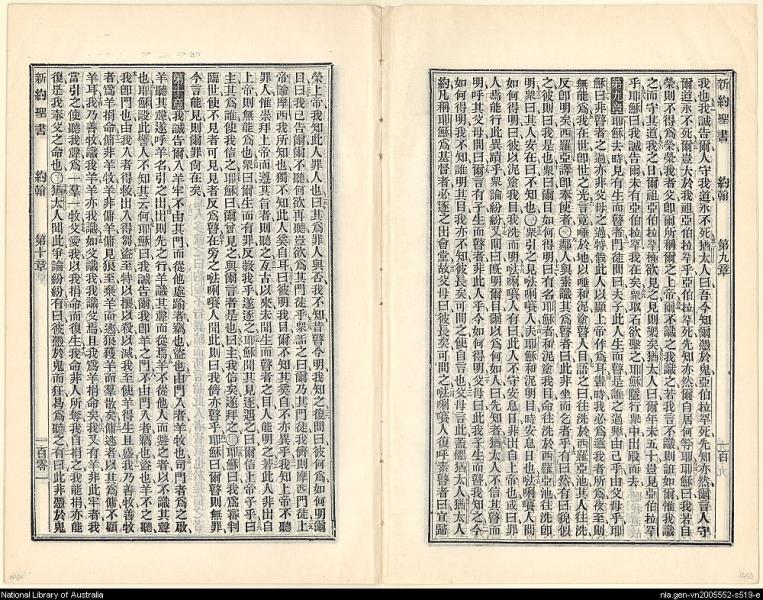 新約聖書 約翰 第九章
我也我誠告爾人守我道永不死猶太人曰吾今知爾憑於鬼亞伯拉罕死先知亦然爾言人守
爾道永不死爾豈大於我祖亞伯拉罕乎亞伯拉罕死先知亦然爾自居何等耶耶穌曰我若自
榮則不得為榮榮我者父即爾所稱爾之上帝爾不識之我識之若我言不識則誑如爾惟我識
之而守其道我之日爾祖亞伯拉罕極欲見之見則樂矣猶太人曰爾年未五十豈見亞伯拉罕
乎耶穌曰我誠告爾未有亞伯拉罕我在矣眾取石欲擊之耶穌隱行眾中出殿而去
第九章 耶穌去時見有生而瞽者門徒問曰夫子此人生而瞽是誰之過與由己乎由父母乎耶
穌曰非瞽者之過亦非父母之過特假此人以顯上帝作為耳當時我必為遣我者所為夜至則
無能為我在世即世之光言竟唾於地以唾和泥塗瞽人目語之曰往洗於西羅亞池其人往洗
反即明矣西羅亞譯即奉使者○鄰人與素識其瞽者曰此非坐而乞者乎有曰然有曰貌似
之彼則曰我是也眾曰爾目如何得明曰有名耶穌者和泥塗我目命往洗於西羅亞池往洗即
明眾曰其人安在曰不知也○眾引之見𠵽唎㘔人夫耶穌和泥明目時安息日也𠵽唎㘔人問
如何得明曰彼以泥塗我目我洗而明𠵽唎㘔人有曰此人不守安息日非出自上帝也或曰罪
人焉能行此異蹟乎眾論紛紛又問曰既明爾目爾以為何如人曰先知者猶太人不信其瞽而
明呼其父母問曰爾言有子生而瞽者非此人乎今如何得明父母曰此我子生而瞽我知之今
如何得明我不知誰明其目我亦不知彼長矣可問之使自言也父母言此蓋懼猶太人猶太人
約凡稱耶穌為基督者必逐之出會堂故父母曰彼長矣可問之𠵽唎㘔人復呼素瞽者曰宜歸
榮上帝我知此人罪人也曰其為罪人與否我不知昔瞽今明我知之復問曰彼何為如何明爾
目曰我已告爾爾不聽何欲再聽豈欲為其門徒乎眾詬之曰爾乃其門徒我儕則摩西門徒上
帝諭摩西我所知也獨不知此人奚自耳曰彼明我目爾不知其奚自不亦異乎我知上帝不聽
罪人惟崇拜上帝而遵其旨者則聽之亙古以來未聞生而瞽者之目人能明之若此人非出自
上帝則無能為也眾曰爾生而有罪反教我乎遂逐之耶穌聞其見逐遇之曰爾信上帝子乎曰
主其為誰使我信之耶穌曰爾曾見之與爾言者是也曰主我信矣遂拜之○耶穌曰我為審判
臨世使不見者可見見者反為瞽在旁之𠵽唎㘔人聞此則曰我儕亦瞽乎耶穌曰瞽則無罪
今言能見則爾罪尚在矣
第十章 我誠告爾入羊牢不由其門而從他處踰者竊也盜也由門入者羊牧也司門者為之啟
羊聽其聲遂呼羊名引之出出則先之行羊識其聲而從焉羊不從他人而避之者以不識其聲
也耶穌設此譬人不知其云何耶穌曰我誠告爾我即羊之門不由門入者竊也盜也羊不之聽
我即門也由我入者得救出入得芻盜至特以攘以殺以滅我至使羊得生且盛我乃善牧善牧
者為羊捐命傭非羊牧羊非傭羊傭見狼至棄羊而逃狼獲羊而羣散矣傭逃者以其為傭不顧
羊耳我乃善牧識我羊我羊亦我識如父識我我識父焉且我為羊捐命矣我又有羊非此牢者我
當引之使聽我聲為一羣一牧父愛我以我捐命而復生我命非人所奪我自捐之我能捐亦能
復是我奉父之命也○猶太人間此爭論紛紛有曰彼憑於鬼而狂易為聽之有曰此非憑於鬼
新約聖書 約翰 第十章
National Library of Australia
nla.gen-vn2005552-s519-e